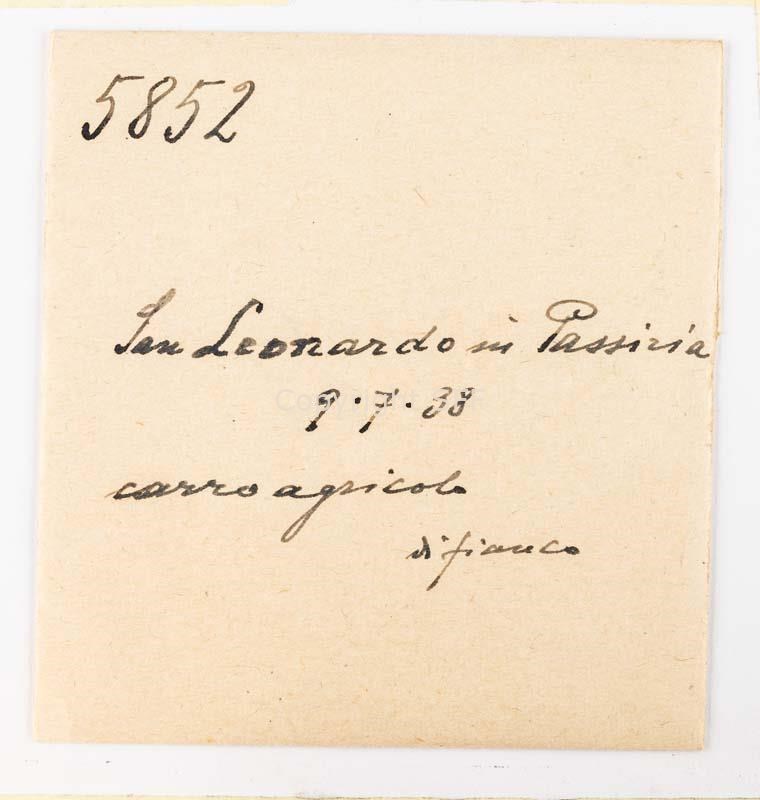 5852
San Leonardo in Passiria
9.7.38
carro agricolo
di fianco